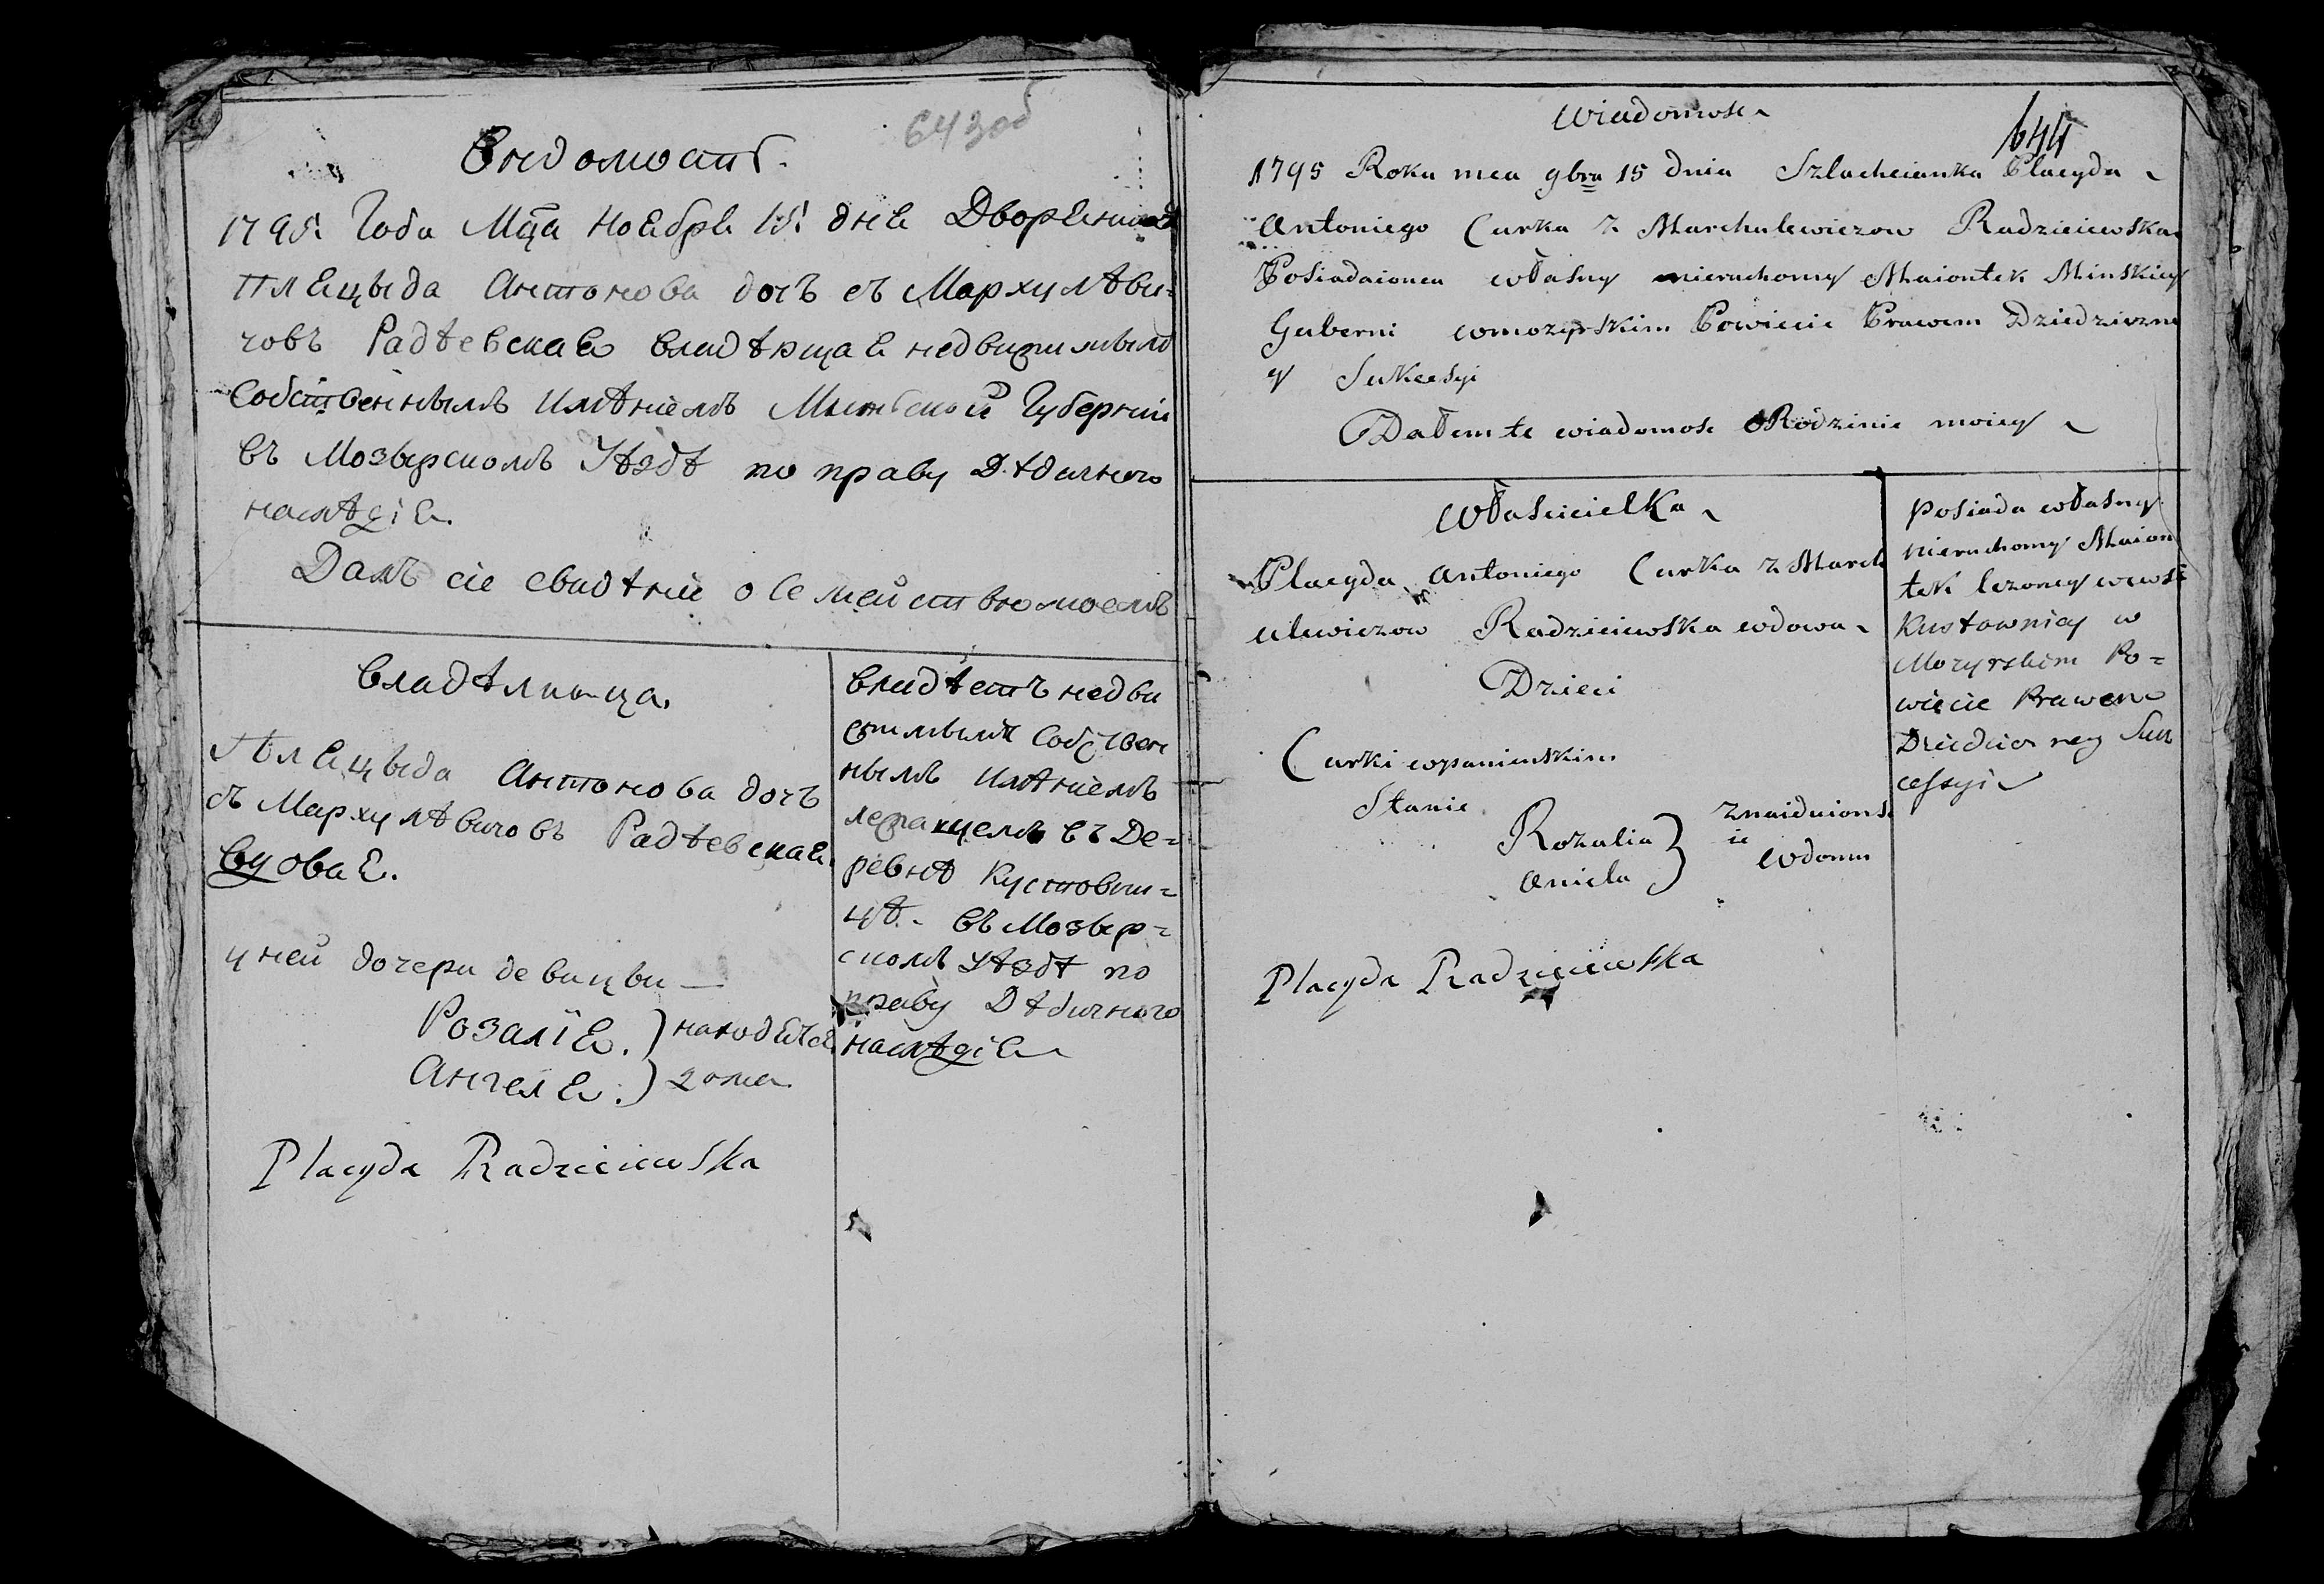 643 об
Ведомость.
1795. Года Мца Ноября 15. дня Дворянка
Пляцыда Антонова дочъ съ Мархулѣви=
човъ Радѣевская владѣющая недвижимымъ
Собственнымъ имѣнiемъ Минской Губернiи
въ Мозырскомъ Уѣздѣ по праву Дѣдичного
наслѣдiя.
Далъ сiе свидѣнiи о Семействѣ моемъ
Владѣлница.
Пляцыда Антонова дочъ
съ Мархулѣвичовъ Радѣевская
вдовая.
у ней дочери девицы —
Розалiя. ) находятся
Ангеля. ) дома
Placyda Radzieiewska
владѣетъ недви
жимымъ Собствен
нымъ имѣнiемъ
лежащемъ въ Де=
ревнѣ Кустовни=
цѣ. въ Мозыр=
скомъ Уѣздѣ по
праву Дѣдичного
наслѣдiя
Wiadomosc
644
1795 Roku mca 9bra 15 dnia Szlachcianka Placyda
Antoniego Curka z Marchulewiczow Radzieiewska
Posiadaionca własny nieruchomy Maiontek Minskiey
Guberni w mozyrskim Powiecie Prawem Dziedziczne
y Sukcesyi
Dałem te wiadomosc o Rodzinie moiey
Włascicielka
Placyda Antoniego Curka z March
ulewiczow Radzieiewska wdowa
Dzieci
Curki w panienskim
Stanie
Rozalia } znaiduionse
Aniela } ie w domu
Placyda Radzieiewska
Posiada własny
nieruchomy Maion
tek lezoncy we wsi
Kustownicy w
Mozyrskim Po=
wiecie Prawem
Dziediczney Suk
cessyi